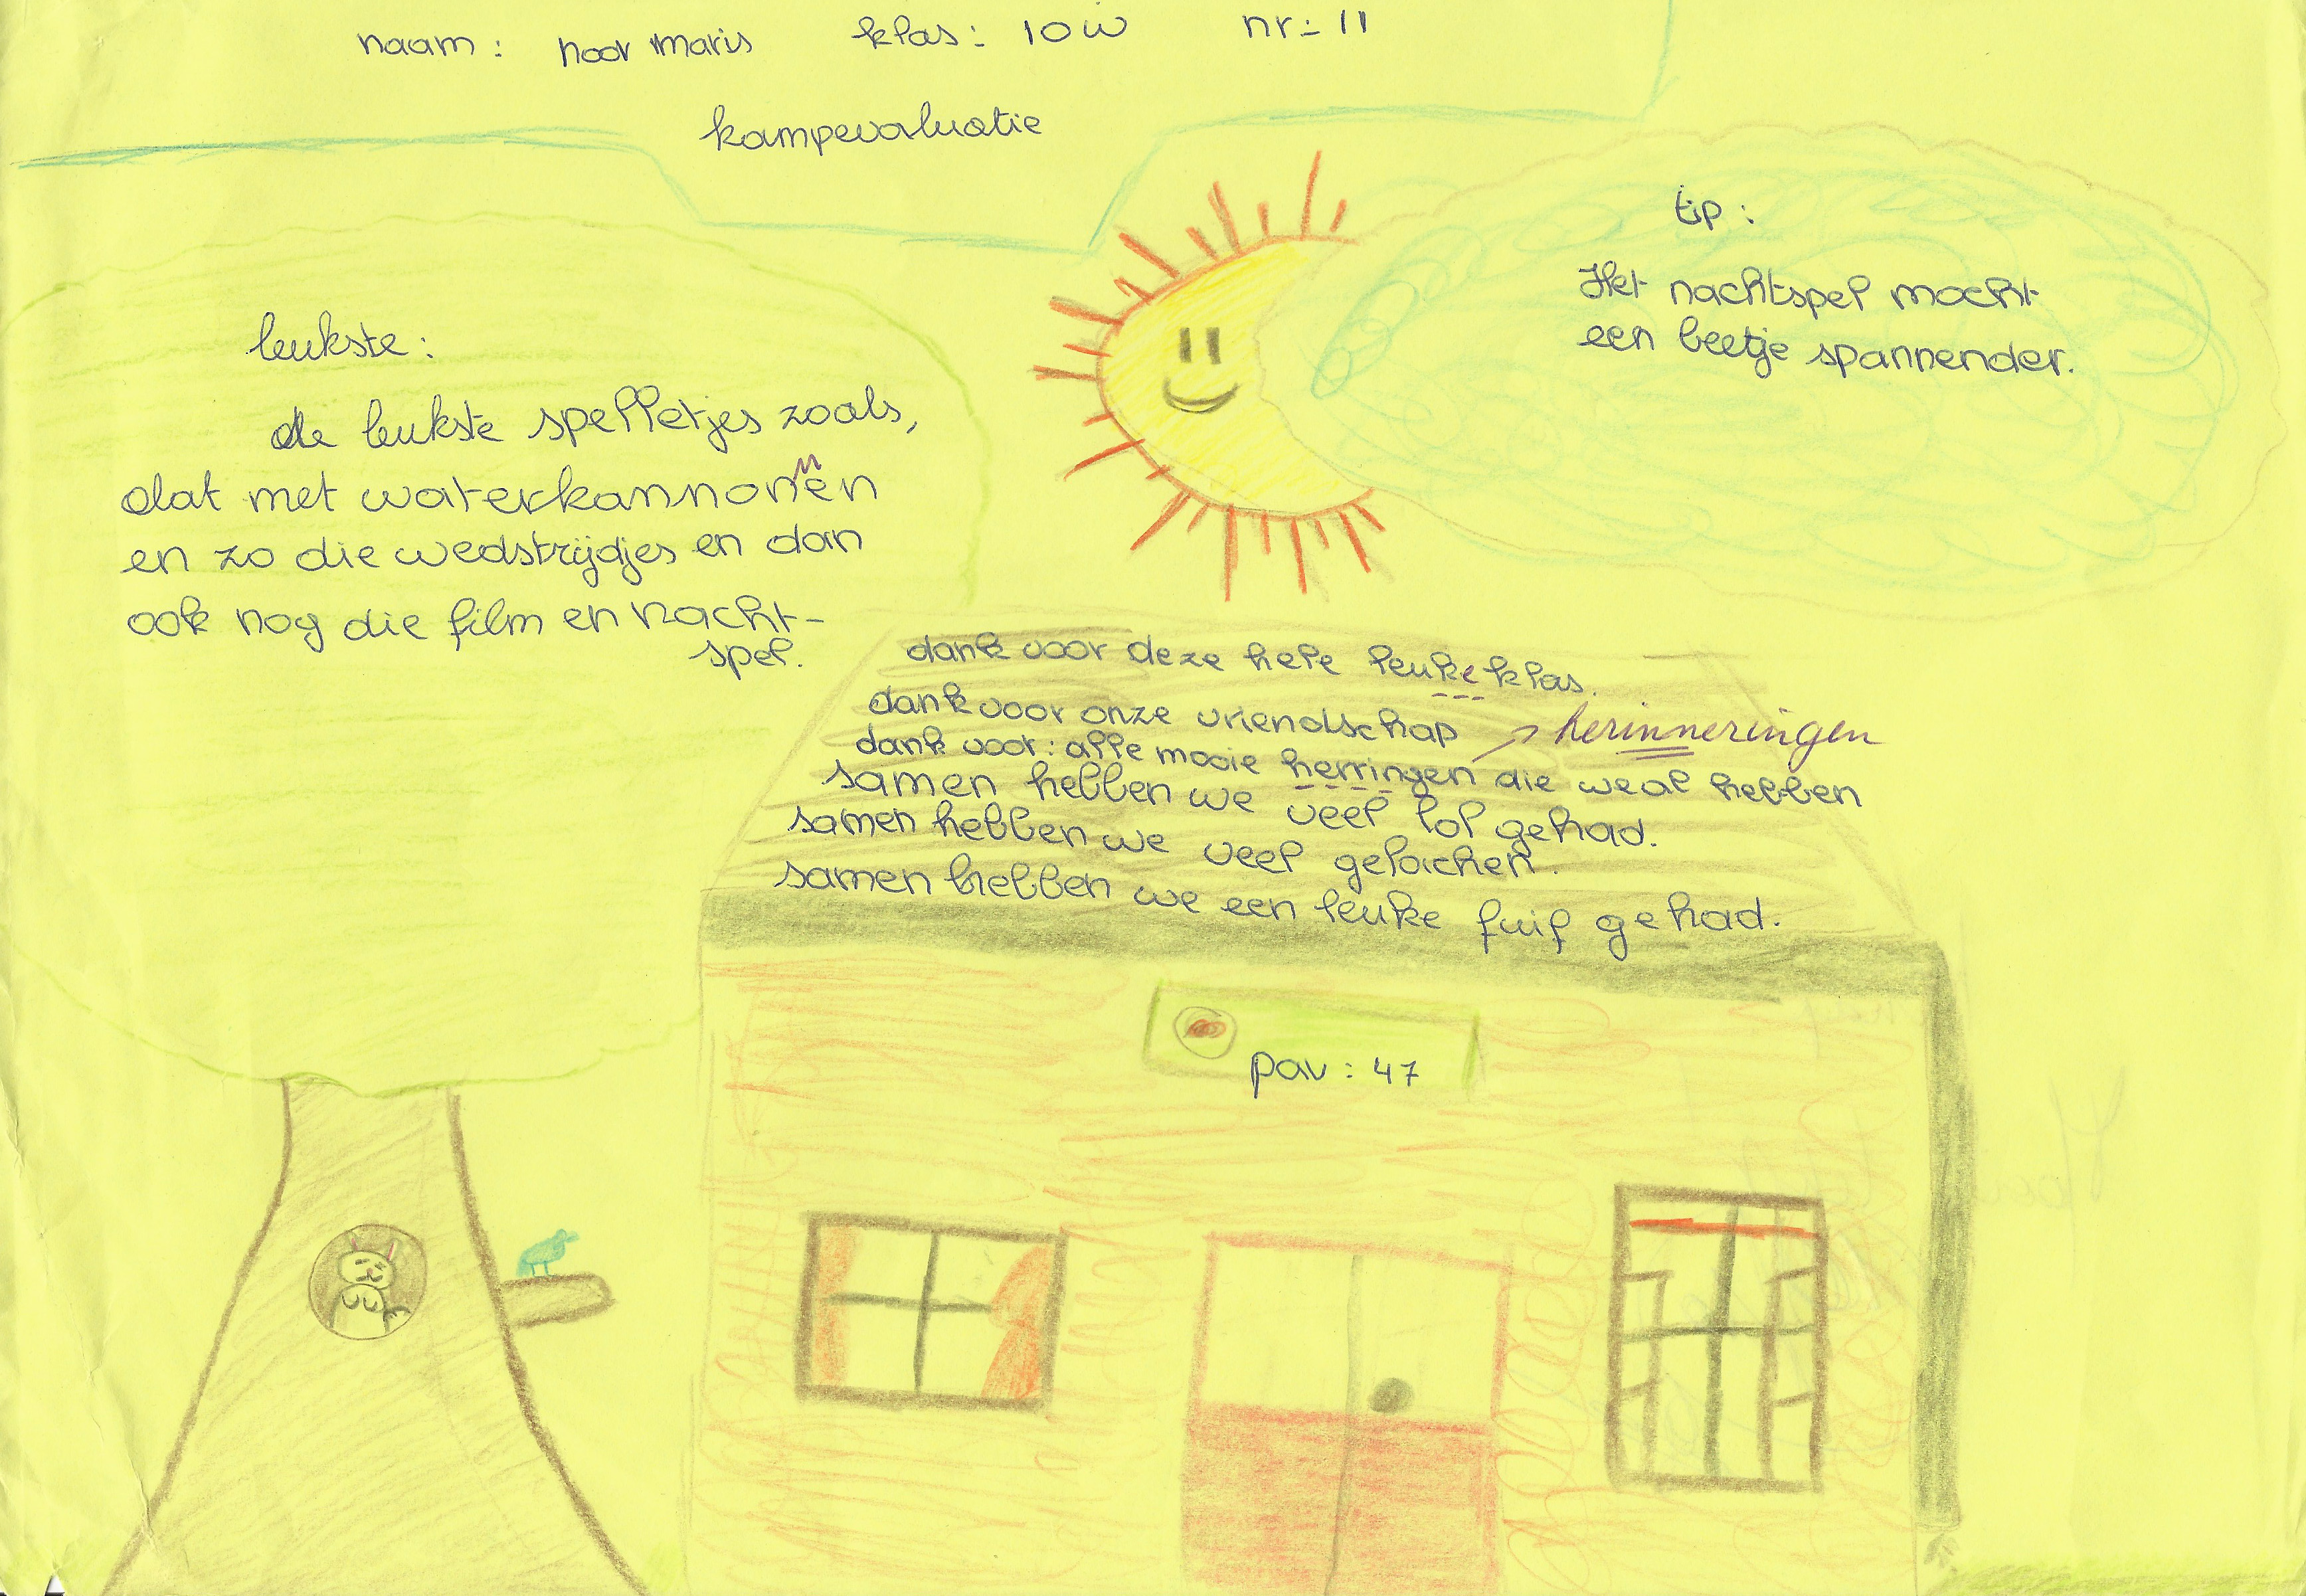 naam : noor maris klas : 10w nr : 11
kampevaluatie
tip :
Het nachtspel mocht
een beetje spannender.
leukste :
de leukste spelletjes zoals,
dat met waterkannonnen
en zo die wedstrijdjes en dan
ook nog die film en nacht-
spel.
dank voor deze hele leuke klas.
dank voor onze vriendschap
herinneringen
dank voor : alle mooie herringen die weal hebben
samen hebben we veel lol gehad.
samen hebben we veel gelachen.
samen hebben we een leuke fuif gehad.
pav : 47